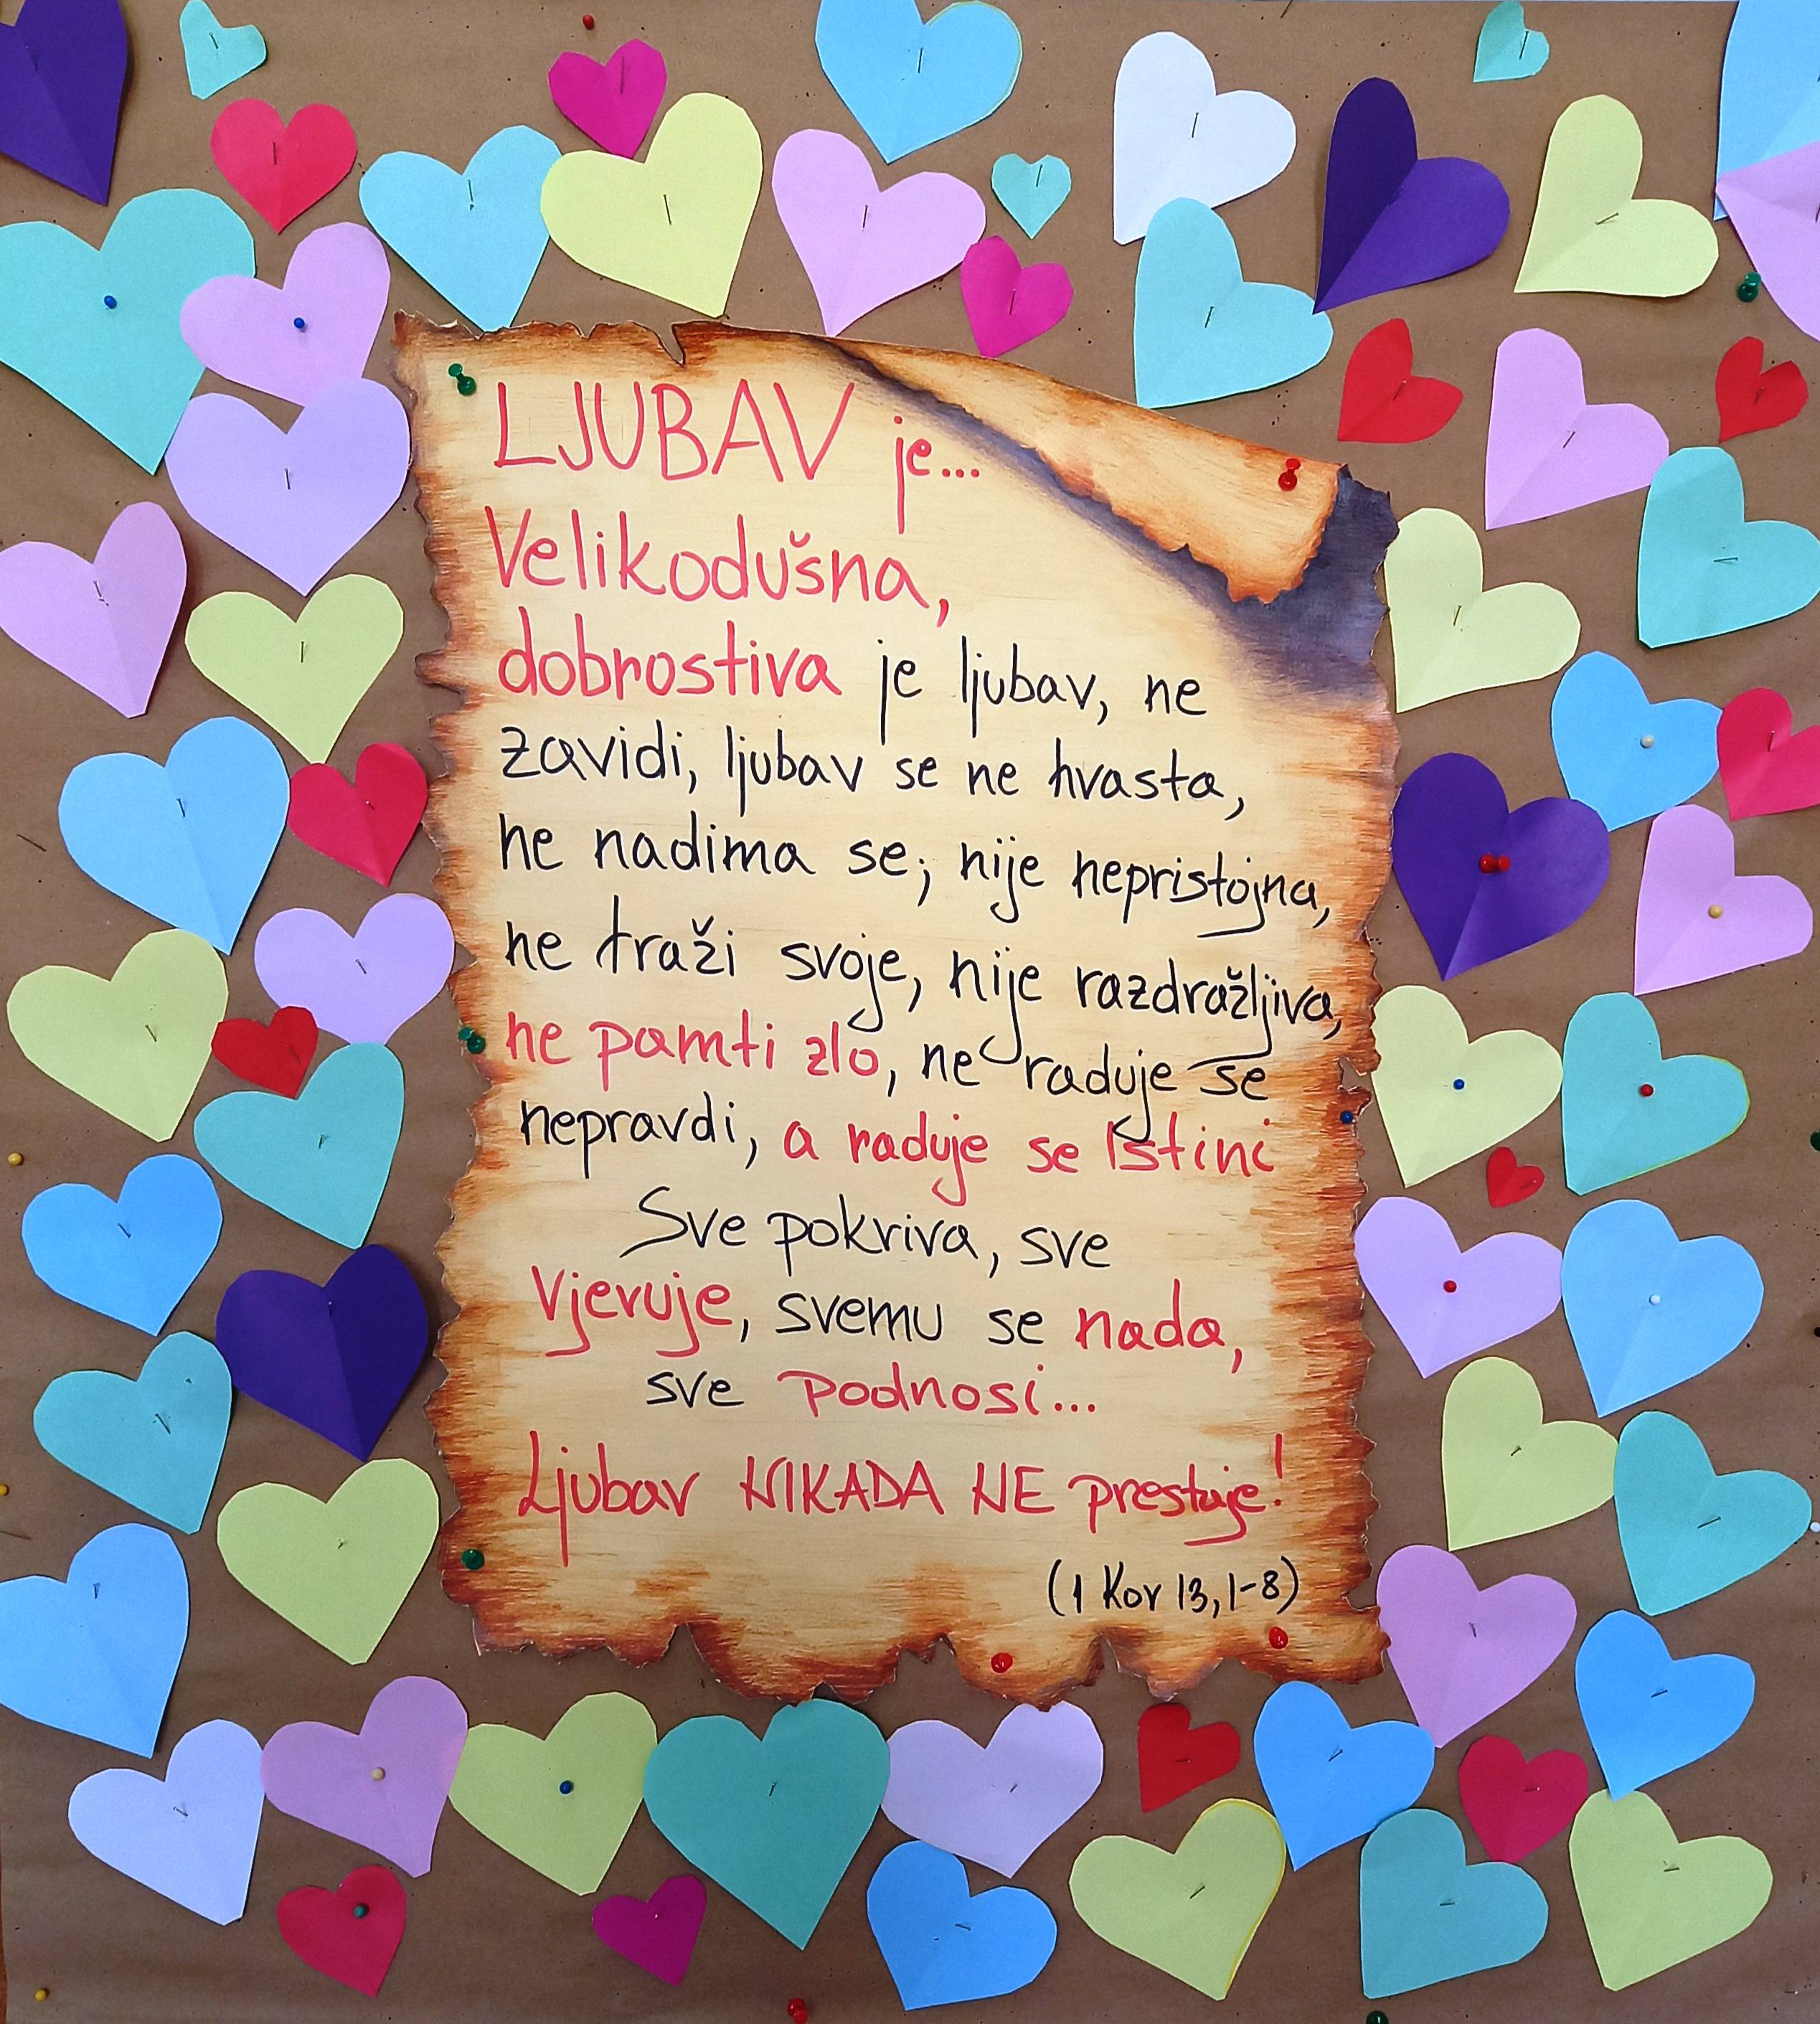 LJUBAV je...
Velikodušna,
dobrostiva je ljubav, ne
zavidi, ljubav se ne hvasta,
ne nadima se; nije nepristojna,
ne traži svoje, nije razdražljiva,
ne pamti zlo, ne raduje se
nepravdi, a raduje se Istini
Sve pokriva, sve
Vjeruje, svemu se nada,
sve podnosi...
Ljubav NIKADA NE prestaje!
(1 Kor 13,1-8)